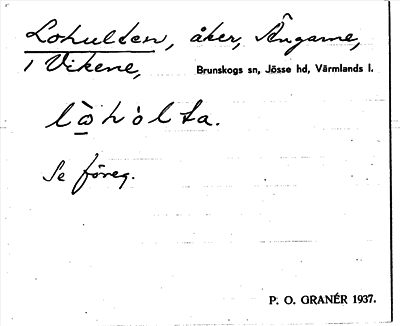 Lohulten, åker, Ängarne,
i Vikene, Brunskogs sn, Jösse hd, Värmlands l.
lò̱hòlta.
Se föreg.
P. O. GRANÉR 1937.